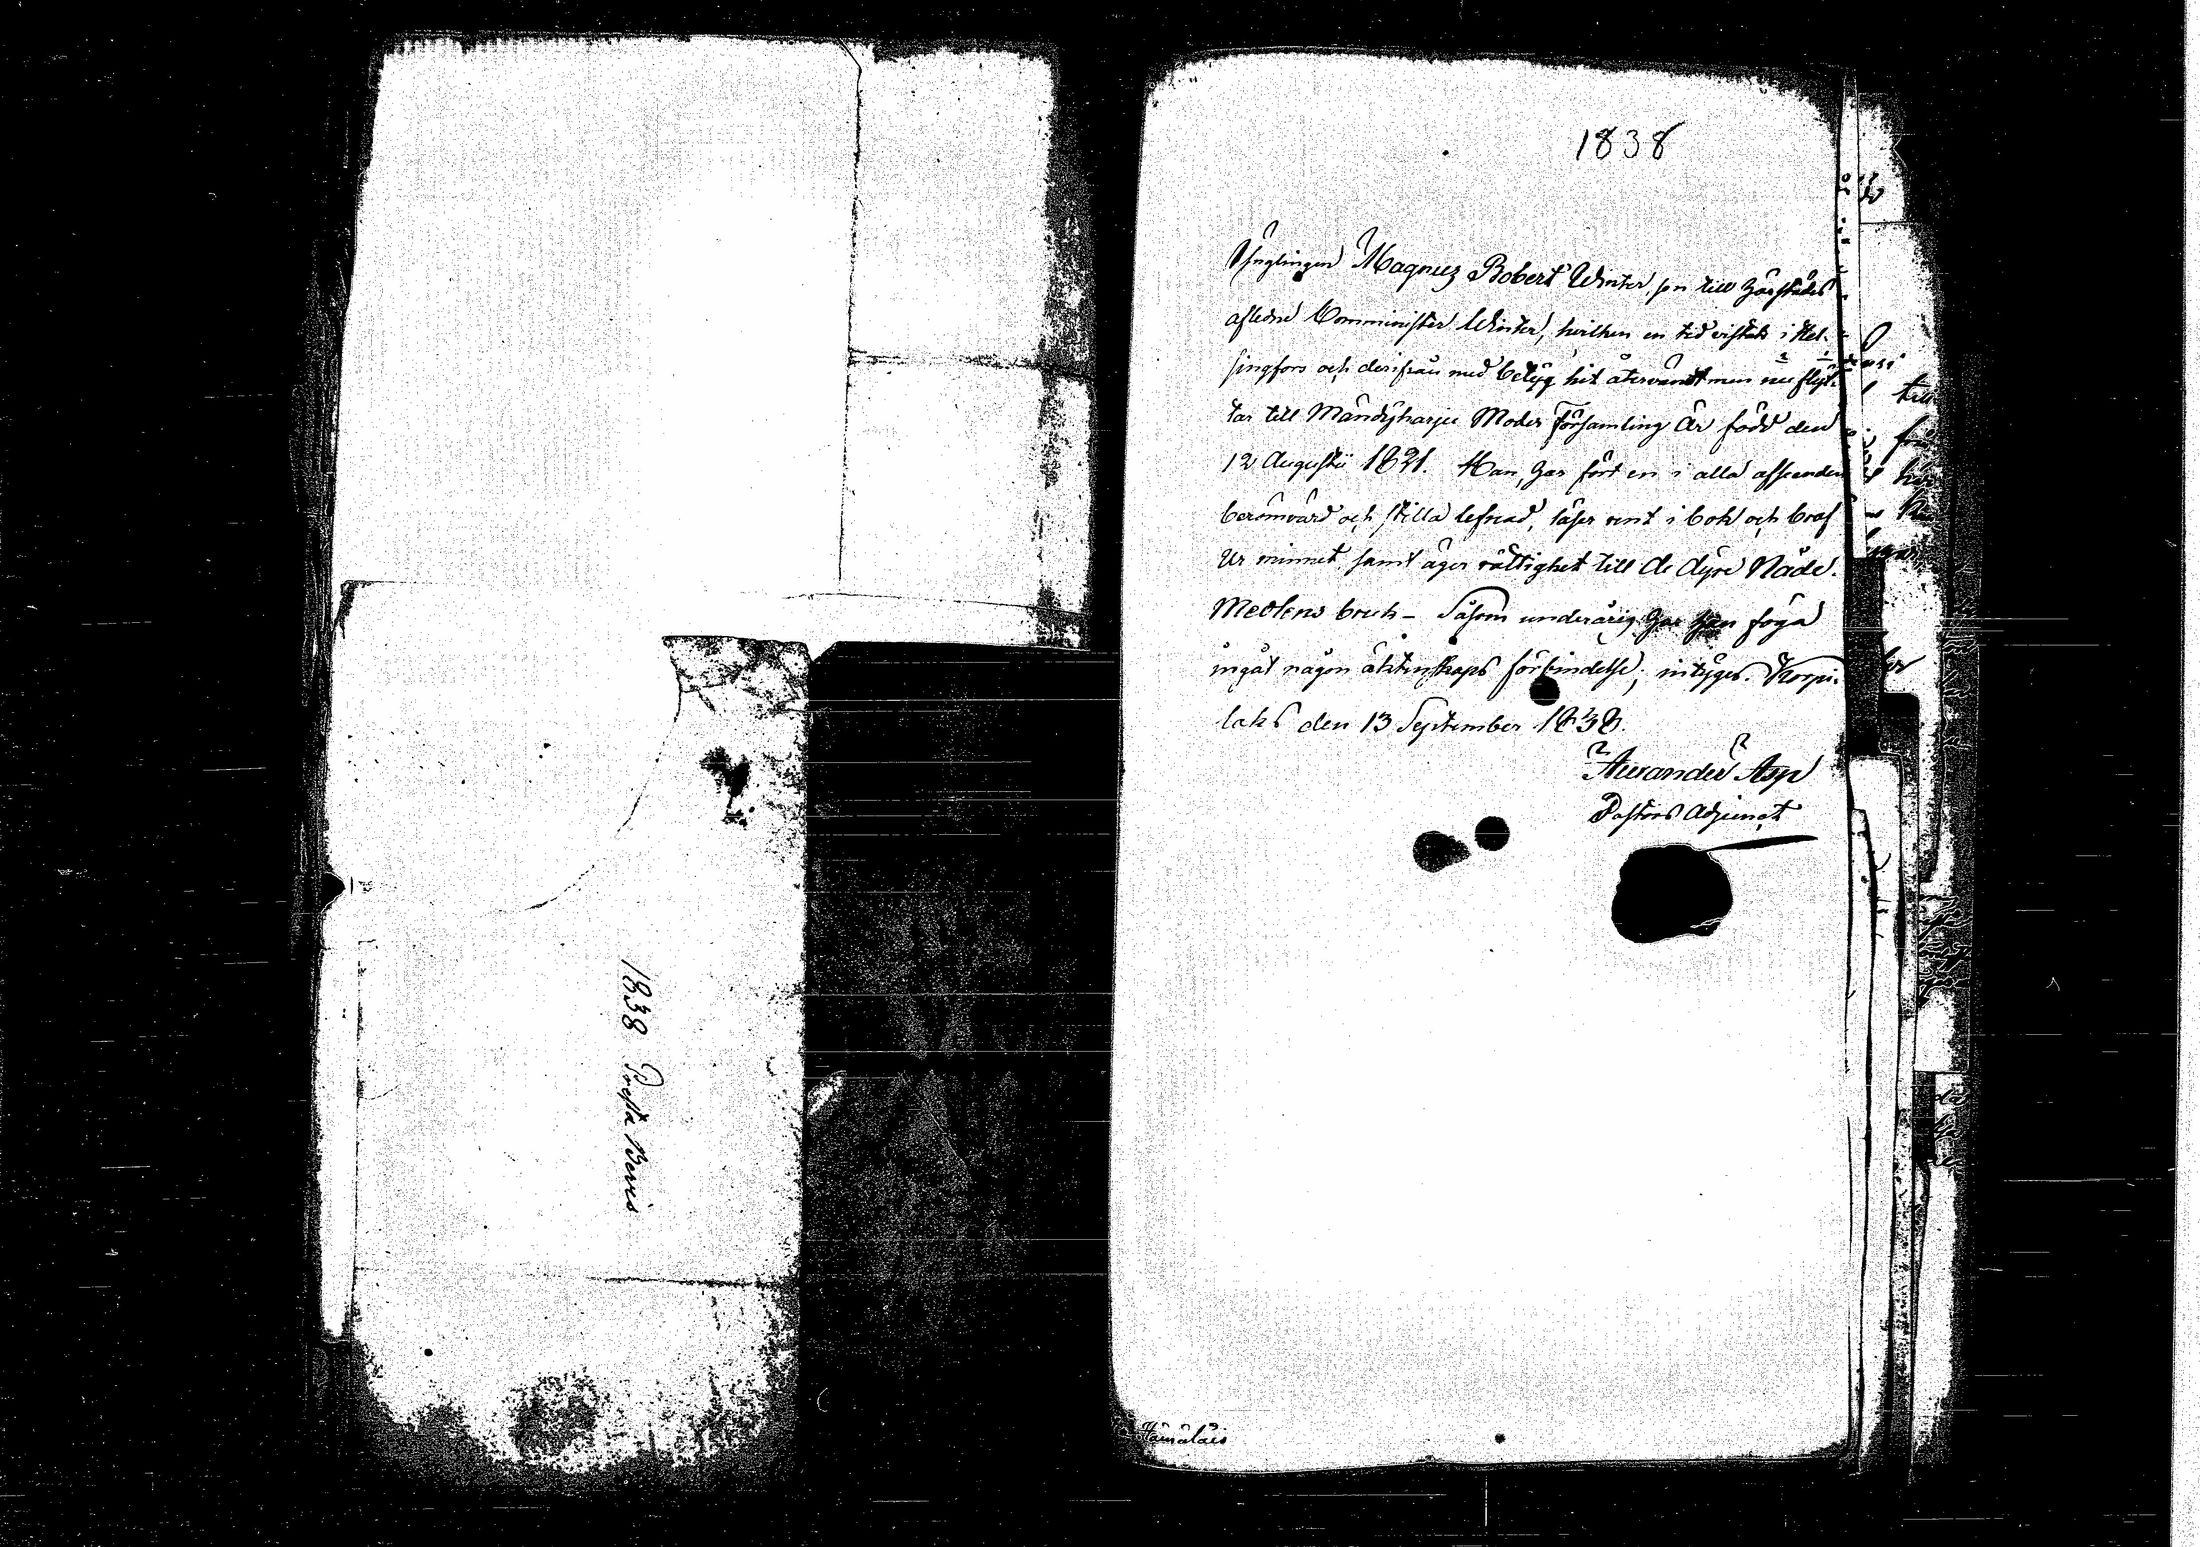 1838 Prestä Bevis
1838
Ynglingen Magnus Robert Winter, son till härstädes
aflidne Comminister Winter, hvilken en tid vistats i Hel-
singfors och derifrån med betyg hit återvändt men nu flyt-
tar till Mändyharju Moder församling Är född den
12 Augustii 1821. Han har fört en i alla afseenden
berömvärd och stilla lefnad, läser rent i bok och braf
Ur minnet samt äger rättighet till de dyre Nåde-
Medlens bruk – Såsom underårig har han föga
ingåt någon äktenskaps förbindelse; intyges. Korpi-
laks den 13 September 1838.
Alexander Asp
Pastors Adjunct